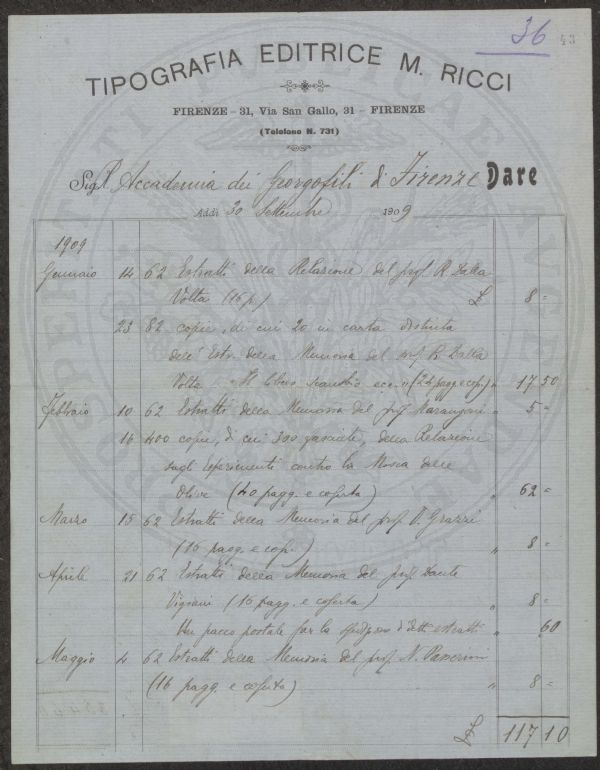 36 43
TIPOGRAFIA EDITRICE M. RICCI
FIRENZE - 31, Via San Gallo, 31 - FIRENZE
(Telefono N. 731)
Sigr Accademia dei Georgofili di Firenze Dare
Addì 30 Settembre 1909
1909
Gennaio 14 62 Estratti della Relazione del prof. R. Dalla
Volta (16 p.) £ 8 =
23 82 copie, di cui 20 in carta distinta
dell' Estr. della Memoria del prof. R. Dalla
Volta "Il libero scambio ecc." (24 pagg. e cop.) " 17 50
Febbraio 10 62 Estratti della Memoria del prof. " 5 =
16 400 copie, di cui 300 gassinate, della Relazione
sugli esperimenti contro la Mosca delle
Olive (40 pagg. e coperta) " 62 =
Marzo 15 62 Estratti della Memoria del prof. V. Grazzi
(16 pagg. e cop.) " 8 =
Aprile 21 62 Estratti della Memoria del prof. Dante
Vigiani (16 pagg. e coperta) " 8 =
Un pacco postale per la spedizione di detti estratti " 60
Maggio 4 62 Estratti della Memoria del prof. N. Passerini
(16 pagg. e coperta) " 8 =
£ 117 10